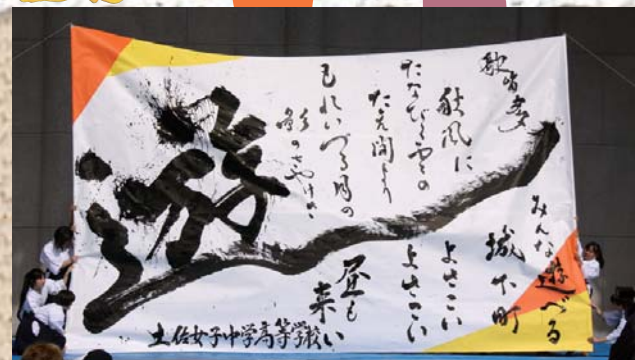 歌留多
秋風に
たなびく雲の
たえ間より
もれいづる月の
影のさやけさ
遊
みんな遊べる
城下町
よさこい
よさこい
昼も
来い
土佐女子中学高等学校